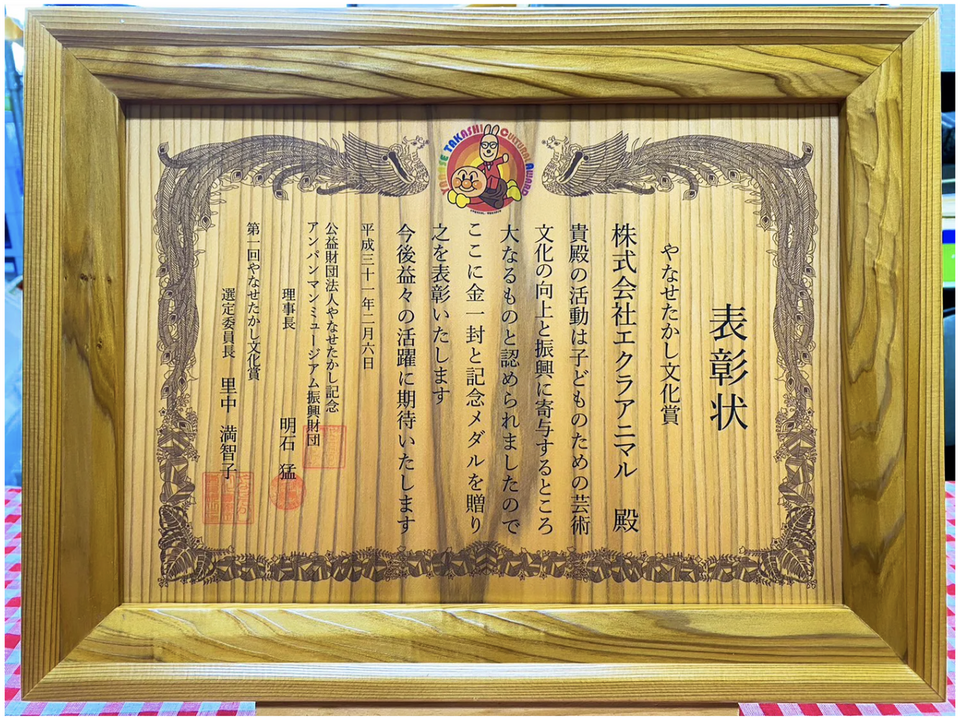 YANASE TAKASHI CULTURAL AWARD
表彰状
やなせたかし文化賞
株式会社エクラアニマル 殿
貴殿の活動は子どものための芸術
文化の向上と振興に寄与するところ
大なるものと認められましたので
ここに金一封と記念メダルを贈り
之を表彰いたします
今後益々の活躍に期待いたします
平成三十一年二月六日
公益財団法人やなせたかし記念
アンパンマンミュージアム振興財団
理事長 明石 猛
第一回やなせたかし文化賞
選定委員長 里中 満智子